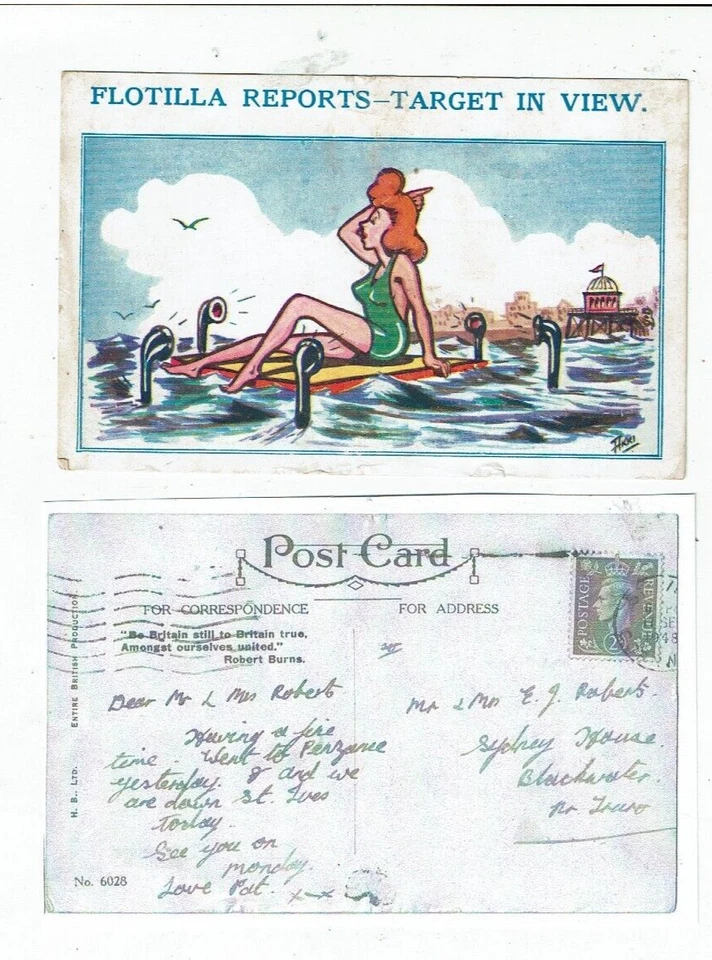 FLOTILLA REPORTS—TARGET IN VIEW.
Post Card
FOR CORRESPONDENCE
FOR ADDRESS
"Be Britain still to Britain true,
Amongst ourselves united."
Robert Burns.
POSTAGE
REVENUE
Dear Mr & Mrs Robert
Having a fine
time. Went to Penzance
yesterday. & and we
are down St. Ives
today.
See you on
monday.
Love Pat. x-x
Mr & Mrs E. J. Robert.
Sydney House.
Blackwater.
Nr Truro
H. B., LTD. ENTIRE BRITISH PRODUCTION
No. 6028